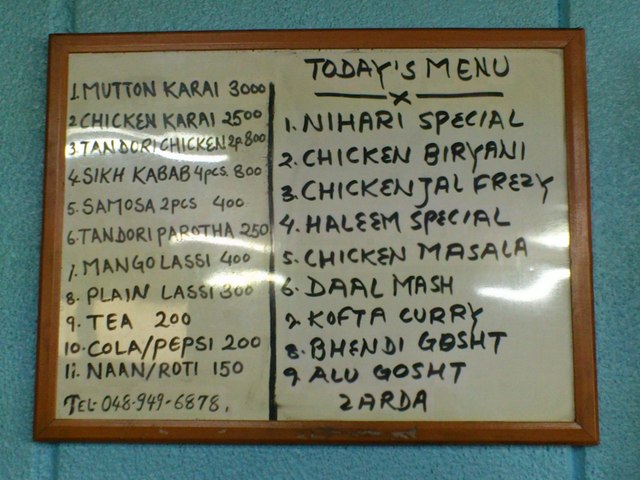 1. MUTTON KARAI 3000
2. CHICKEN KARAI 2500
3. TANDORI CHICKEN 2p 800
4. SIKH KABAB 4pcs. 800
5. SAMOSA 2 PCS 400
6. TANDORI PAROTHA 250
7. MANGO LASSI 400
8. PLAIN LASSI 300
9. TEA 200
10. COLA/PEPSI 200
11. NAAN/ROTI 150
TEL- 048-949-6878.
TODAY'S MENU
1. NIHARI SPECIAL
2. CHICKEN BIRYANI
3. CHICKEN JAL FREZY
4. HALEEM SPECIAL
5. CHICKEN MASALA
6. DAAL MASH
7. KOFTA CURRY
8. BHENDI GOSHT
9. ALU GOSHT
ZARDA